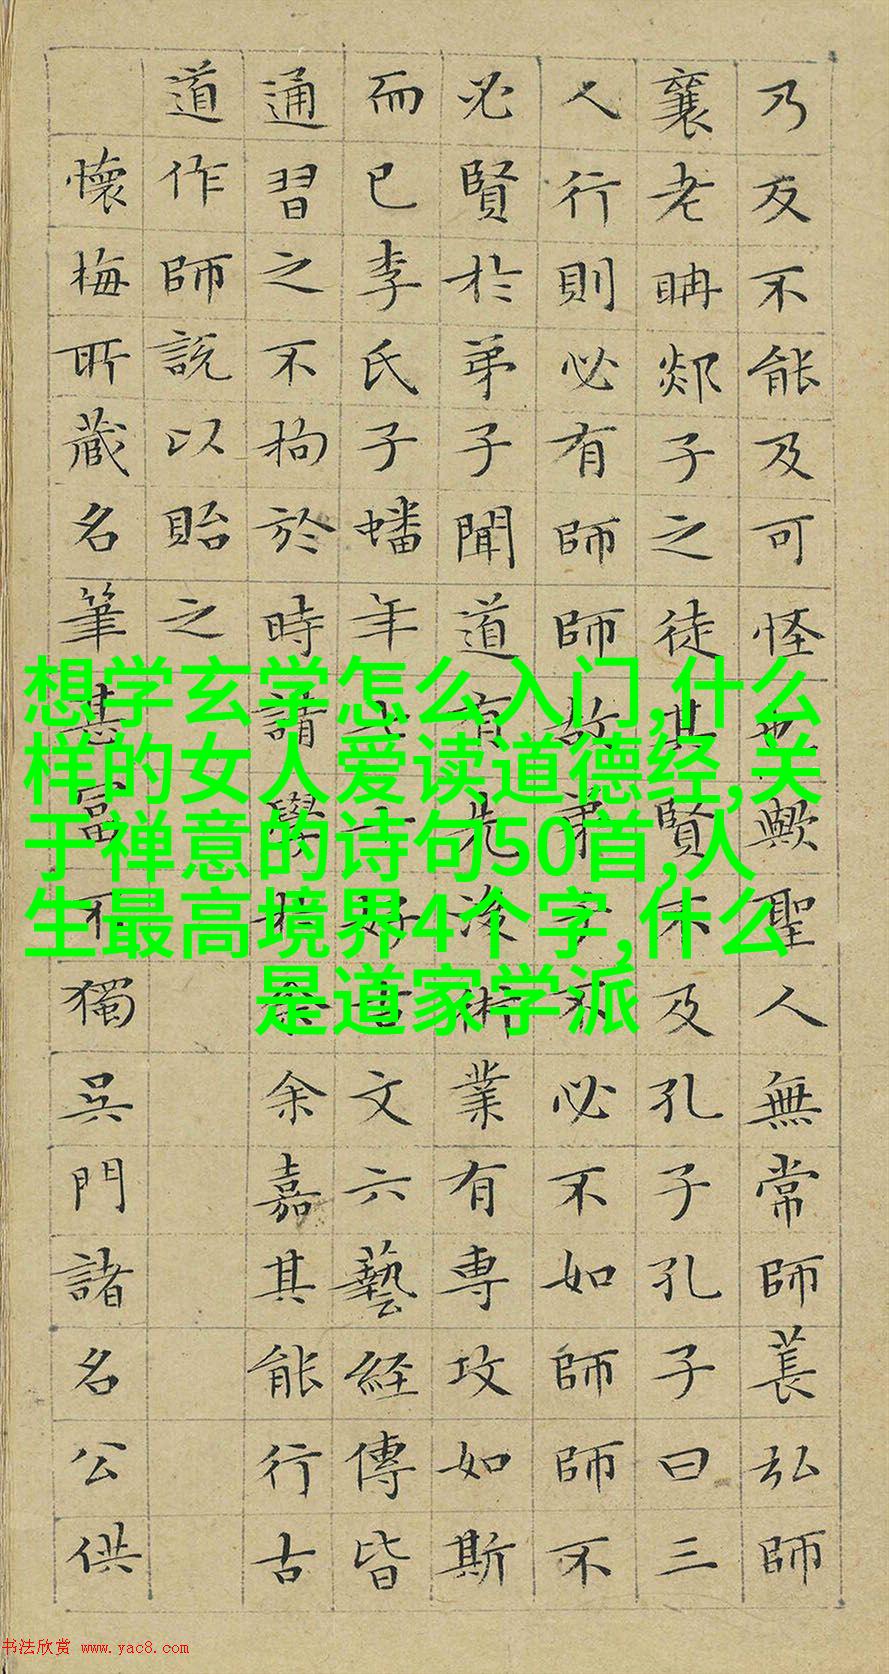 乃反不能及可怪也歟聖人無常師萇弘師
襄老聃郯子之徒其賢不及孔子孔子曰三
人行則必有師師故弟子不必不如師師不
必賢於弟子聞道有先後術業有專攻如斯
而已李氏子蟠年十七好古文六藝經傳皆
通習之不拘於時請學於余余嘉其能行古
道作師說以貽之
懷梅所藏名筆甚富不獨吳門諸名公供
想学玄学怎么入门,什么
样的女人爱读道德经,关
于禅意的诗句50首,人
生最高境界4个字,什么
是道家学派
书法欣赏 www.yac8.com